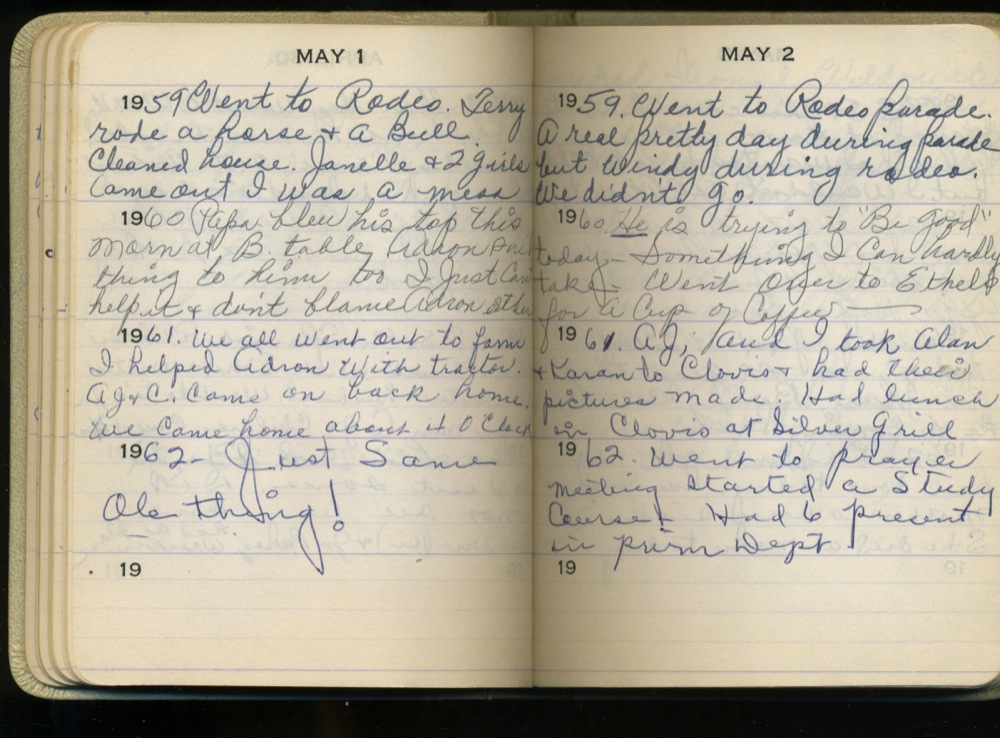 MAY 1
1959 Went to Rodeo. Terry
rode a horse & a Bull.
Cleaned house. Janelle & 2 girls
Came out I was a mess
1960 Papa blew his top this
morn at B. table, Adron
thing to him too I Just Can
help it & don't blame Adron either
1961. We all went out to farm
I helped Adron with tractor.
AJ & C. Came on back home.
We Came home about 4 O'Clock
1962- Just Same
Ole thing!
19
MAY 2
1959. Went to Rodeo parade.
A real pretty day during parade
but windy during rodeo.
We didn't go.
1960. He is trying to "Be good"
today - Something I Can hardly
take - Went Over to Ethels
for a Cup of Coffee
1961. AJ, and I took Alan
& Karan to Clovis & had their
pictures made. Had lunch
in Clovis at Silver Grill
1962. Went to prayer
meeting started a Study
Course! Had 6 present
in prim Dept
19